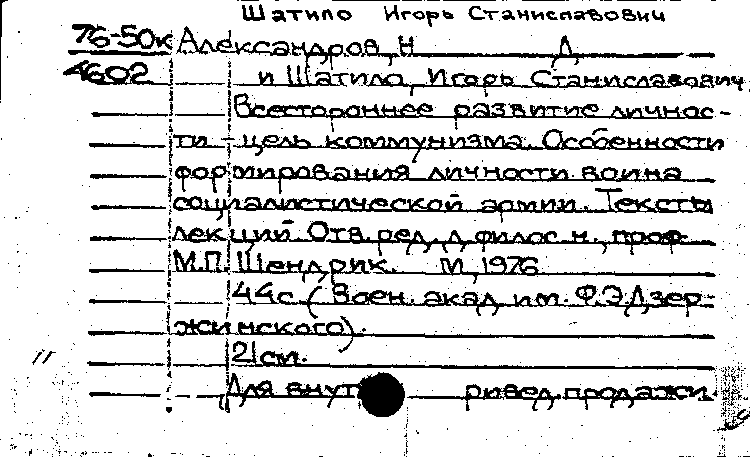 Шатило Игорь Станиславович
76-50к Александров, Н Д
4602 и Шатило, Игорь Станиславович
Всестороннее развитие личнос-
ти - цель коммунизма. Особенности
формирования личности воина
социалистической армии. Тексты
лекций. Отв. ред. д. филос. н., проф.
М.П. Шендрик. М, 1976
44с. (Воен. акад. им. Ф.Э. Дзер-
жинского).
21см.
Для внут ривед. продажи.